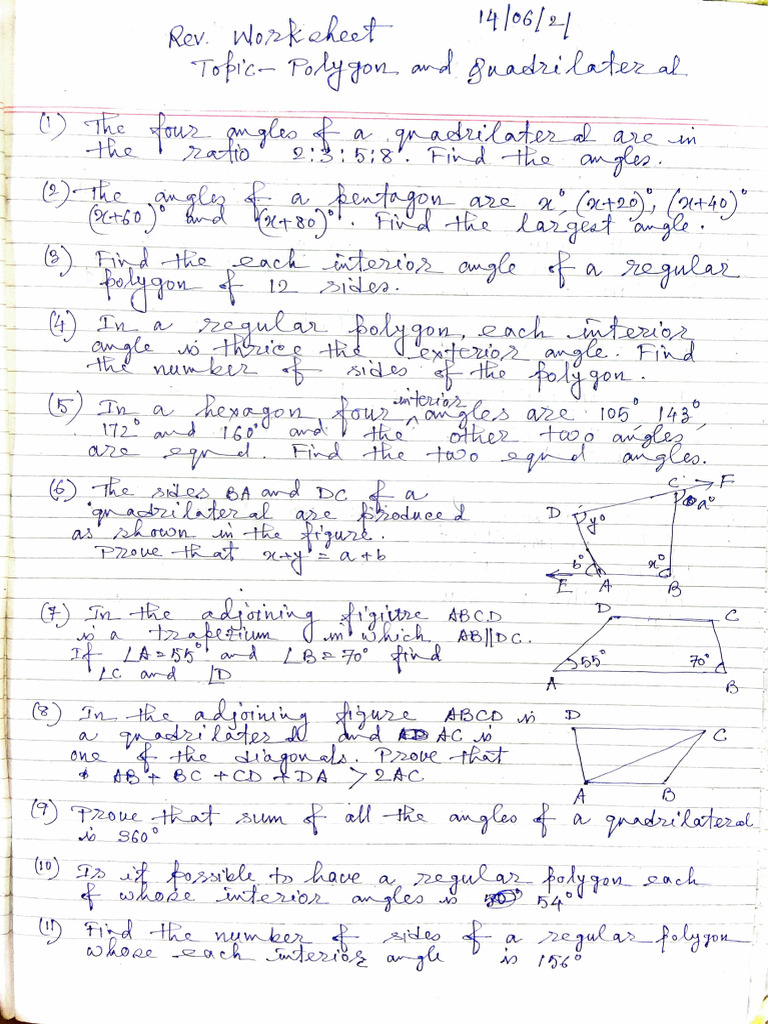 14/06/21
Rev. Worksheet
Topic- Polygon and Quadrilateral
(1) The four angles of a quadrilateral are in
the ratio 2:3:5:8. Find the angles.
(2) The angles of a pentagon are x°, (x+20)°, (x+40)°
(x+60)° and (x+80)°. Find the largest angle.
(3) Find the each interior angle of a regular
polygon of 12 sides.
(4) In a regular polygon, each interior
angle is thrice the exterior angle. Find
the number of sides of the polygon.
(5) In a hexagon, four interior angles are 105°, 143°,
172° and 160° and the other two angles
are equal. Find the two equal angles.
(6) The sides BA and DC of a
quadrilateral are produced
as shown in the figure.
Prove that x+y = a+b
C F
a°
D y°
b° x°
E A B
(7) In the adjoining figure ABCD
is a trapezium in which AB||DC.
If ∠A=55° and ∠B=70° find
∠C and ∠D
D C
55° 70°
A B
(8) In the adjoining figure ABCD is
a quadrilateral and AC is
one of the diagonals. Prove that
AB + BC + CD + DA > 2AC
D C
A B
(9) Prove that sum of all the angles of a quadrilateral
is 360°
(10) Is it possible to have a regular polygon each
of whose interior angles is 54°
(11) Find the number of sides of a regular polygon
whose each interior angle is 156°